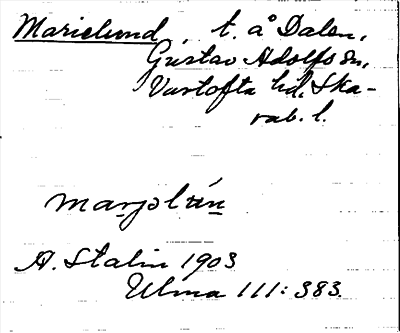 Marielund, t. å Dalen,
Gustav Adolfs sn,
Vartofta hd, Ska-
rab. l.
marjolún
A. Stalin 1903
Ulma 111:383